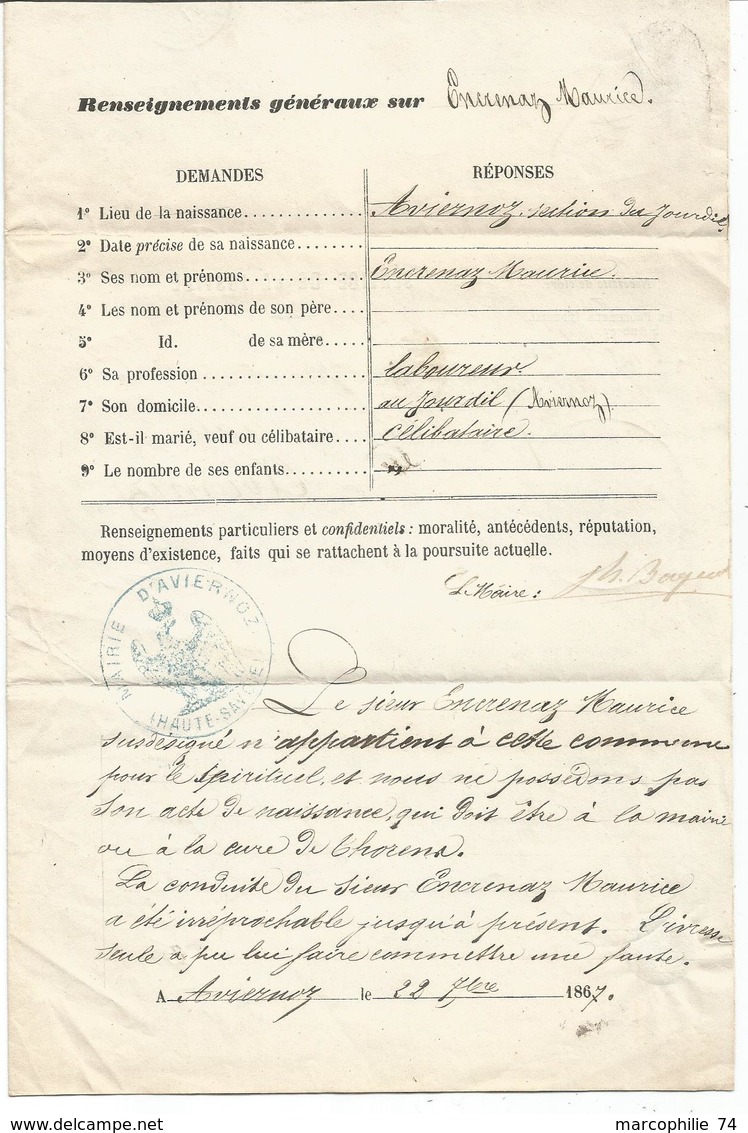 Renseignements généraux sur Encrenaz Maurice.
DEMANDES RÉPONSES
1º Lieu de la naissance............... Aviernoz, section du Jourdil
2º Date précise de sa naissance.........
3º Ses nom et prénoms............... Encrenaz Maurice.
4º Les nom et prénoms de son père....
5º Id. de sa mère.....
6º Sa profession .................... laboureur.
7º Son domicile..................... au Jourdil (Aviernoz).
8º Est-il marié, veuf ou célibataire.... Célibataire.
9º Le nombre de ses enfants..........
Renseignements particuliers et confidentiels : moralité, antécédents, réputation,
moyens d'existence, faits qui se rattachent à la poursuite actuelle.
Le Maire :
MAIRIE D'AVIERNOZ
(HAUTE-SAVOIE)
Le sieur Encrenaz Maurice
susdésigné n'appartient à cette commune
pour le spirituel, et nous ne possédons pas
son acte de naissance, qui doit être à la mairie
ou à la cure de Thorens.
La conduite du sieur Encrenaz Maurice
a été irréprochable jusqu'à présent. L'ivresse
seule a pu lui faire commettre une faute.
A Aviernoz le 22 7bre 1867.
marcophilie 74